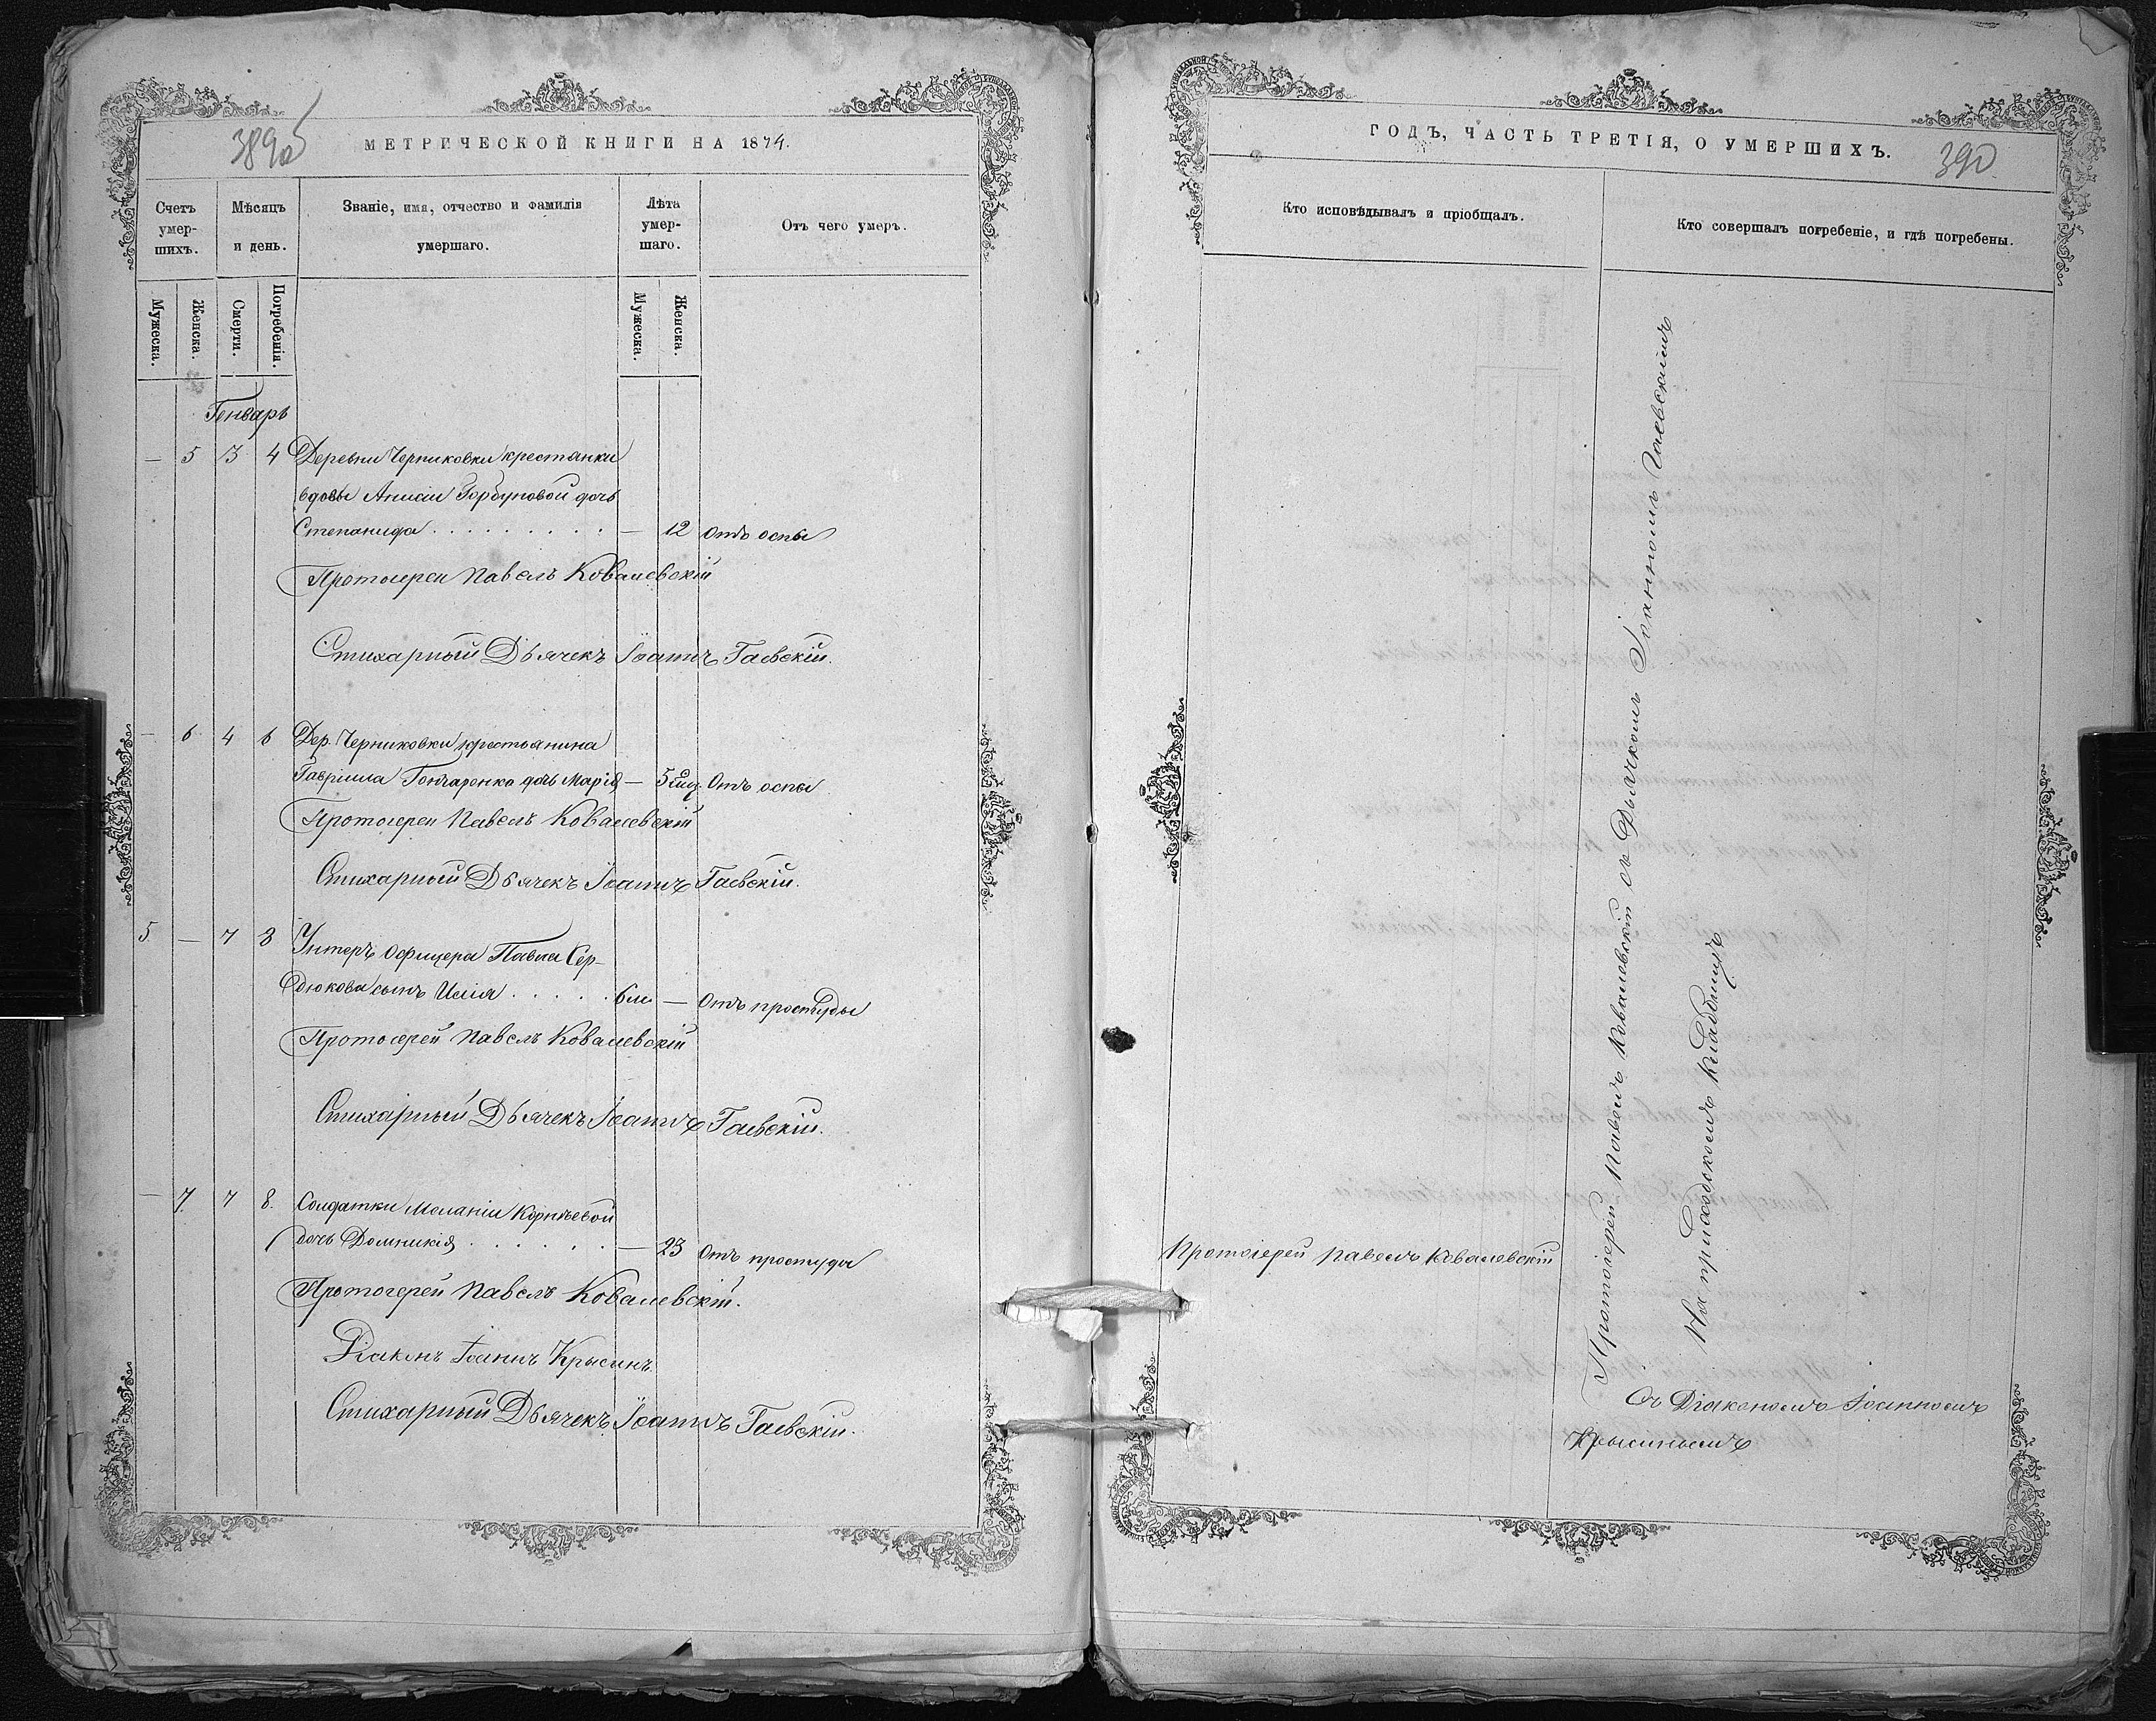 389об
МЕТРИЧЕСКОЙ КНИГИ НА 1874.
Счетъ умер-шихъ.
Мѣсяцъ и день.
Званіе, имя, отчество и фамилія умершаго.
Лѣта умер-шаго.
Отъ чего умеръ.
Мужеска.
Женска.
Смерти.
Погребенія.
Мужеска.
Женска.
Генварь
— 5 3 4 Деревни Черниковки крестянки
вдовы Анисіи Горбуновой дочь
Степанида . . . . . . . . . — 12 отъ оспы
Протоіерей Павелъ Ковалевскій
Стихарный Дьячекъ Іоаннъ Гаевскій.
— 6 4 6 Дер. Черниковки крестьянина
Гавріила Гончаренка дочь Марія — 5 мц. Отъ оспы
Протоіерей Павелъ Ковалевскій
Стихарный Дьячекъ Іоаннъ Гаевскій.
5 — 7 8 Унтеръ офицера Павла Сер-
дюкова сынъ Илія . . . . . 6м. — Отъ простуды
Протоіерей Павелъ Ковалевскій
Стихарный Дьячекъ Іоаннъ Гаевскій.
— 7. 7 8. Солдатки Меланіи Корнѣевой
дочь Домникія . . . . . . — 23 Отъ простуды
Протоіерей Павелъ Ковалевскій.
Діаконъ Іоаннъ Крысинъ.
Стихарный Дьячекъ Іоаннъ Гаевскій.
ГОДЪ, ЧАСТЬ ТРЕТІЯ, О УМЕРШИХЪ.
390
Кто исповѣдывалъ и пріобщалъ.
Кто совершалъ погребеніе, и гдѣ погребены.
Протоіерей Павелъ Ковалевскій
Протоіерей Павелъ Ковалевскій съ Дьячкомъ Іоанномъ Гаевскимъ
На приходскомъ кладбищѣ
Съ Діакономъ Іоанномъ
Крысинымъ